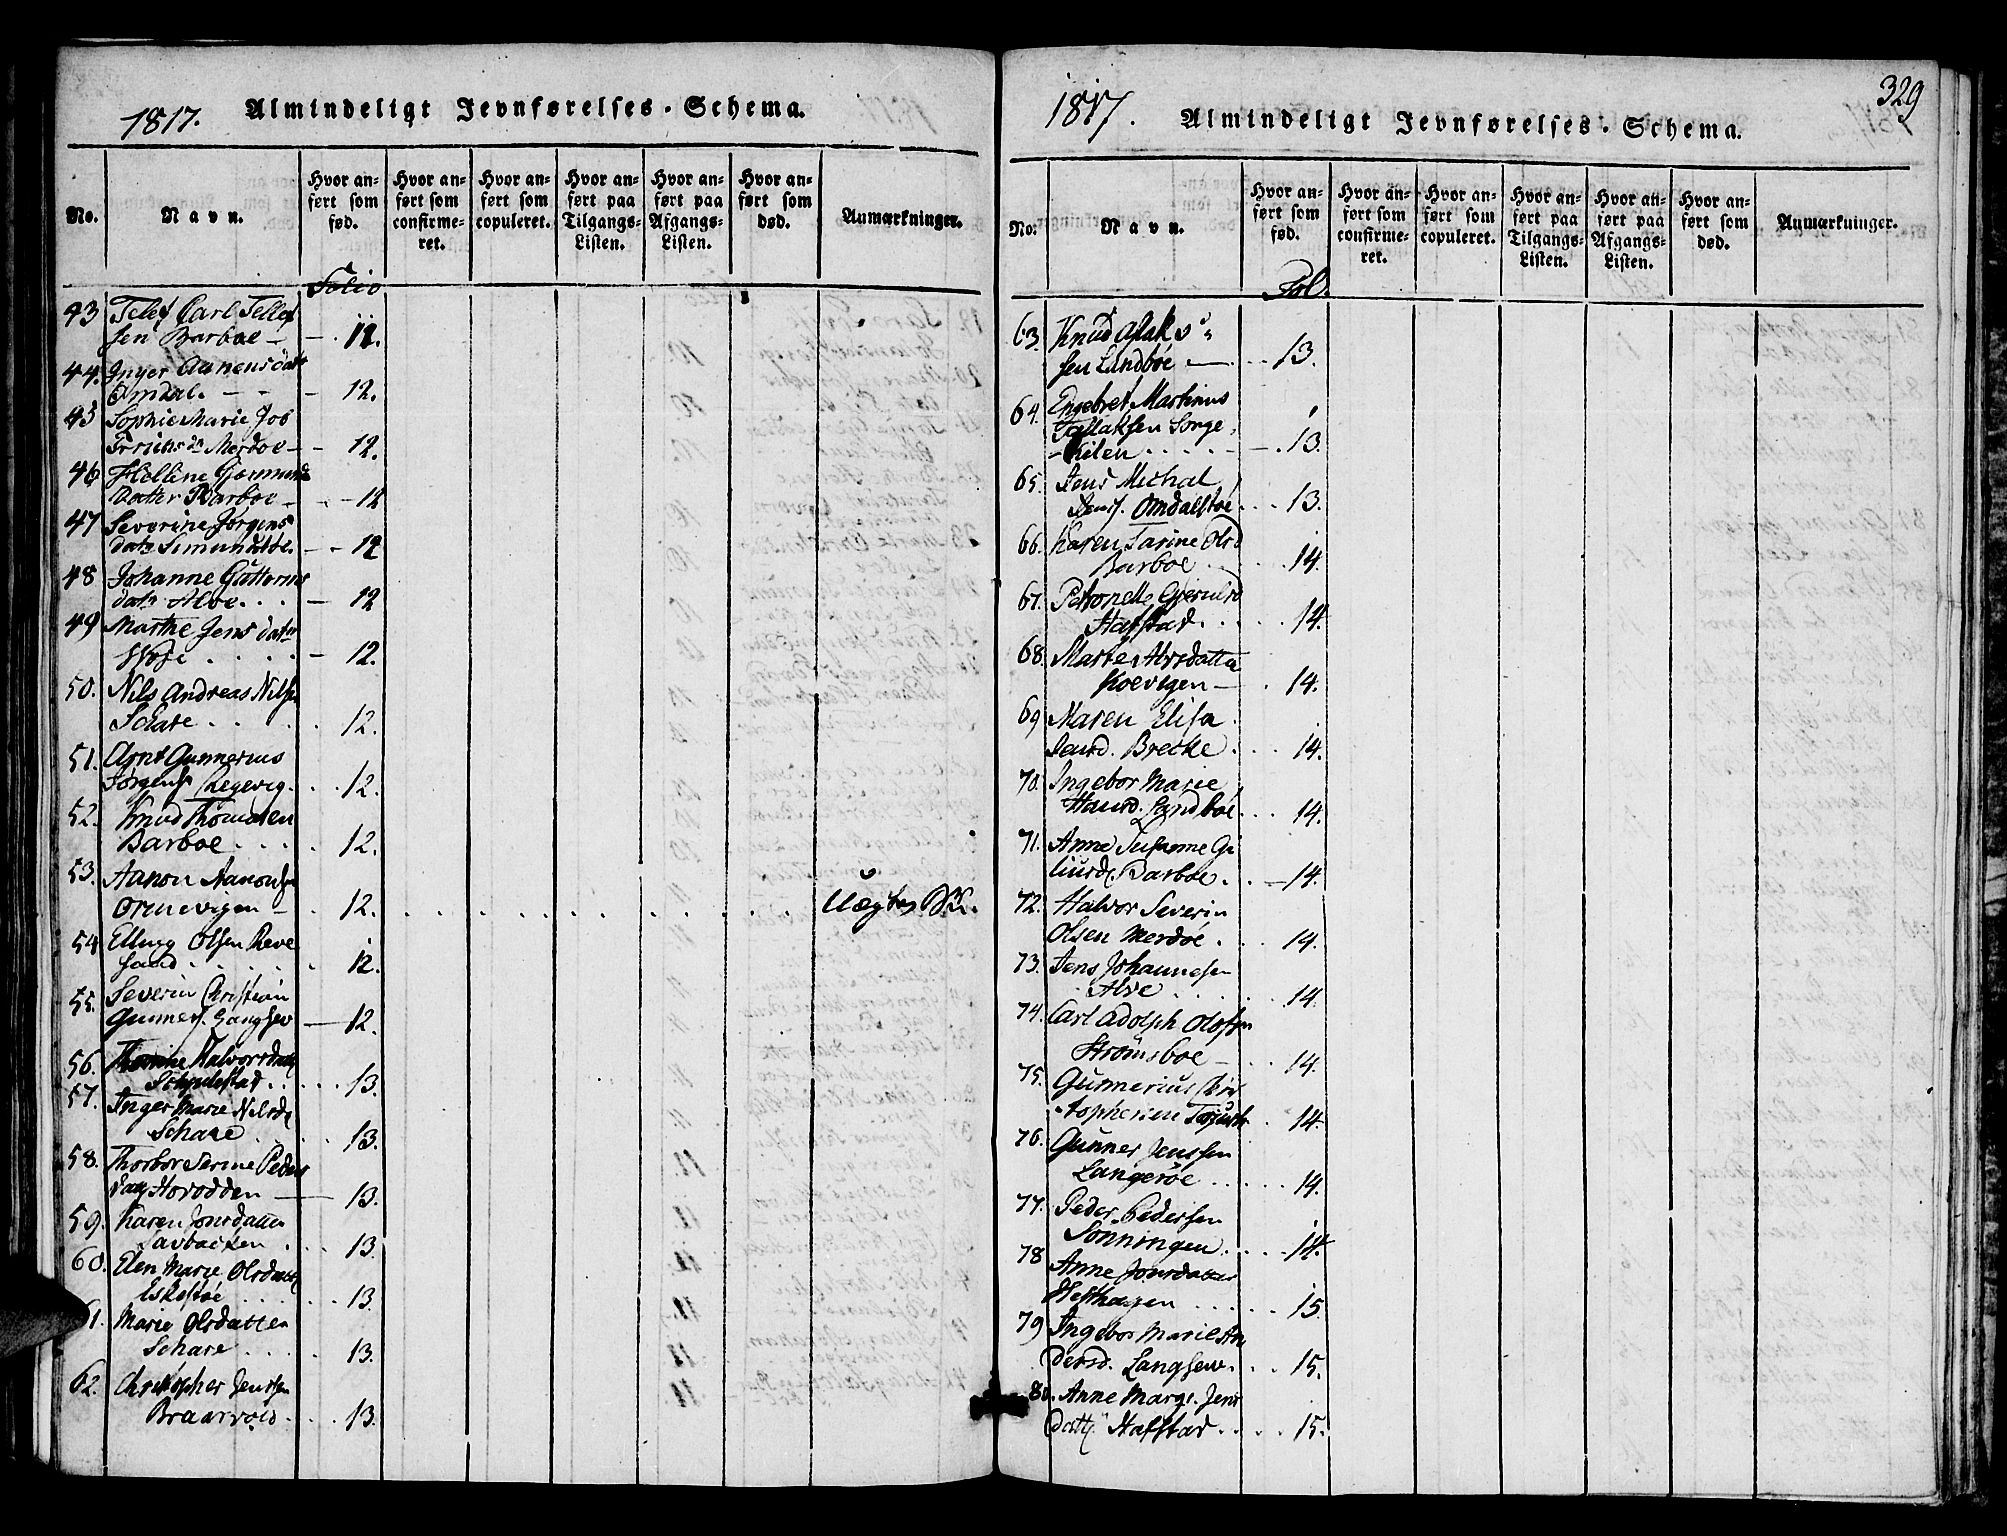 1817. Almindeligt Jevnførelses-Schema.
No.
Navn.
Hvor anført som fød.
Hvor anført som confirmeret.
Hvor anført som copuleret.
Hvor anført paa Tilgangs-Listen.
Hvor anført paa Afgangs-Listen.
Hvor anført som død.
Anmærkninger.
Folio
43 Telef Carl Tellef
sen Barboe - 12.
44. Inger Aanensdatr
Omdal. - - - 12.
45 Sophie Marie Job
Friichs dr Merdoe - 12.
46 Hellene Gormunds
datter Barboe - 12
47 Severine Jørgens
datr Simunstoe. - 12
48 Johanne Guttorms
datr Alve. . . - 12
49 Marthe Jens datr
. . . . - 12.
50. Nils Andreas Nilsen
Schare . . . 12.
51. Arnt Gunnerius
Jørgens Regevig. . . 12.
52. Knud Thomasen
Barboe . . . . 12.
53. Aanon Aanonsen
Ormevigen - . 12. Uægte
54 Ellung Olsen Reve
sand . . . . . 12.
55. Severin Christian
Gunners. Langsev — 12.
56. Halvorsdatt
. . . . 13.
57. Inger Marie Nilsd.
Schare . . . . 13.
58. Thorbor Serine Peders
datt Horodden — 13.
59. Karen Jonsdatter
Savbacken . . . 13.
60. Elen Marie Olsdatt
Eskestøe . . . . 13.
61. Marie Olsdatter
Schare . . . . 13.
62. Christopher Jenssen
Braarvold . . . 13.
1817. Almindeligt Jevnførelses-Schema.
329
No.
Navn.
Hvor anført som fød.
Hvor anført som confirmeret.
Hvor anført som copuleret.
Hvor anført paa Tilgangs-Listen.
Hvor anført paa Afgangs-Listen.
Hvor anført som død.
Anmærkninger.
Fol.
63. Knud Aslak s
sen Landbøe — 13.
64. Engebret Martinus
Tallaksen Sorge
kilen . . . . . - 13.
65. Jens Michal
Jens. Omdalstøe . . . 13.
66. Karen Tarine Olsd
Barboe . . . . 14.
67. Petronelle Gjeruldsd
Hafstad . . . . . 14.
68. Marte Alvsdatter
Koevigen — . 14.
69 Maren Elisa
Jensd. Brecke . . . 14.
70. Ingebor Marie
Hansd. Landbøe . . . 14.
71. Anne Susanne Gi
Barboe. . . — 14.
72. Halvor Severin
Olsen Merdøe . . . 14.
73. Jens Johannesen
Alve . . . . . 14.
74. Carl Adolph Olofsen
Strømsboe — . . 14.
75. Gunnerius Chri
stophersen . 14
76. Gunner Jenssen
Langerøe . . . . . 14.
77. Peder Pedersen
Sønningen . . . . 14.
78 Anne Jonsdatter
Hesthagen . . . . . 15.
79 Ingebor Marie An
dersd. Langsew. . . . 15.
80. Anne Margr. Jens
datt. Hafstad . . . . 15.